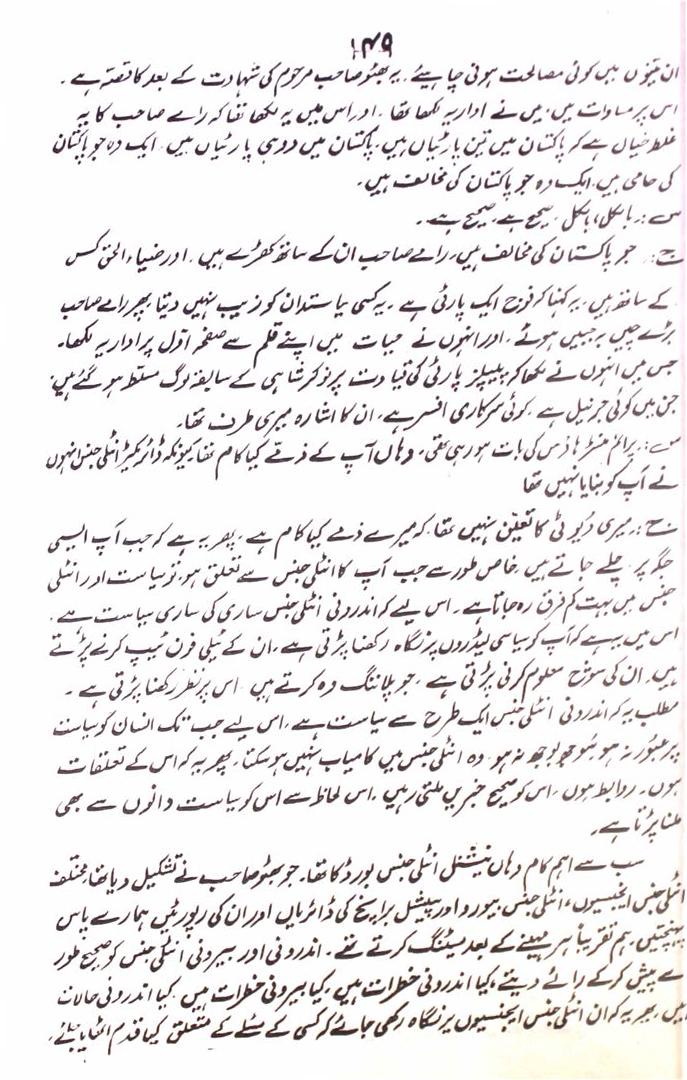 ۱۴۹
ان تینوں میں کوئی مصالحت ہونی چاہیئے۔ یہ بھٹو صاحب مرحوم کی شہادت کے بعد کا قصّہ ہے۔
اس پر مساوات میں، میں نے اداریہ لکھا تھا۔ اور اس میں یہ لکھا تھا کہ رامے صاحب کا یہ
غلط خیال ہے کہ پاکستان میں تین پارٹیاں ہیں، پاکستان میں دو ہی پارٹیاں ہیں۔ ایک وہ جو پاکستان
کی حامی ہیں، ایک وہ جو پاکستان کی مخالف ہیں۔
س:۔ بالکل، بالکل، صحیح ہے، صحیح ہے۔
ج:۔ جو پاکستان کی مخالف ہیں، رامے صاحب ان کے ساتھ کھڑے ہیں۔ اور ضیاء الحق کس
کے ساتھ ہیں، یہ کہنا کہ فوج ایک پارٹی ہے۔ یہ کسی سیاستدان کو زیب نہیں دیتا پھر رامے صاحب
بڑے چیں بہ جبیں ہوئے، اور انہوں نے حیات میں اپنے قلم سے صفحہ اوّل پر اداریہ لکھا۔
جس میں انہوں نے لکھا کہ پیپلز پارٹی کی قیادت پر نوکر شاہی کے سابقہ لوگ مسلط ہو گئے ہیں،
جن میں کوئی جرنیل ہے، کوئی سرکاری افسر ہے، ان کا اشارہ میری طرف تھا۔
س:۔ پرائم منسٹر ہاؤس کی بات ہو رہی تھی، وہاں آپ کے ذمّے کیا کام تھا کیونکہ ڈائریکٹر انٹیلی جنس انہوں
نے آپ کو بنایا نہیں تھا
ج:۔ میری ڈیوٹی کا تعیّن نہیں تھا، کہ میرے ذمے کیا کام ہے، پھر یہ ہے کہ جب آپ ایسی
جگہ پر چلے جاتے ہیں، خاص طور سے جب آپ کا انٹیلی جنس سے تعلق ہو، تو سیاست اور انٹیلی
جنس میں بہت کم فرق رہ جاتا ہے۔ اس لیے کہ اندرونی انٹیلی جنس ساری کی ساری سیاست ہے،
اس میں یہ ہے کہ آپ کو سیاسی لیڈروں پر نگاہ رکھنا پڑتی ہے، ان کے ٹیلی فون ٹیپ کرنے پڑتے
ہیں۔ ان کی سوچ معلوم کرنی پڑتی ہے، جو پلاننگ وہ کرتے ہیں اس پر نظر رکھنا پڑتی ہے۔
مطلب یہ کہ اندرونی انٹیلی جنس ایک طرح سے سیاست ہے، اس لیے جب تک انسان کو سیاست
پر عبور نہ ہو، سوجھ بوجھ نہ ہو، وہ انٹیلی جنس میں کامیاب نہیں ہو سکتا، پھر یہ کہ اس کے تعلقات
ہوں۔ روابط ہوں، اس کو صحیح خبریں ملتی رہیں، اس لحاظ سے اس کو سیاست دانوں سے بھی
ملنا پڑتا ہے۔
سب سے اہم کام وہاں نیشنل انٹیلی جنس بورڈ کا تھا۔ جو بھٹو صاحب نے تشکیل دیا تھا، مختلف
انٹیلی جنس ایجنسیوں، انٹیلی جنس بیورو اور سپیشل برانچ کی ڈائریاں اور ان کی رپورٹیں ہمارے پاس
پہنچتیں، ہم تقریباً ہر مہینے کے بعد میٹنگ کرتے تھے۔ اندرونی اور بیرونی انٹیلی جنس کو صحیح طور
سے پیش کر کے رائے دیتے، کیا اندرونی خطرات ہیں، کیا بیرونی خطرات ہیں، کیا اندرونی حالات
ہیں، پھر یہ کہ ان انٹیلی جنس ایجنسیوں پر نگاہ رکھی جائے کہ کسی کے مسئلے کے متعلق کیا قدم اٹھایا جائے،